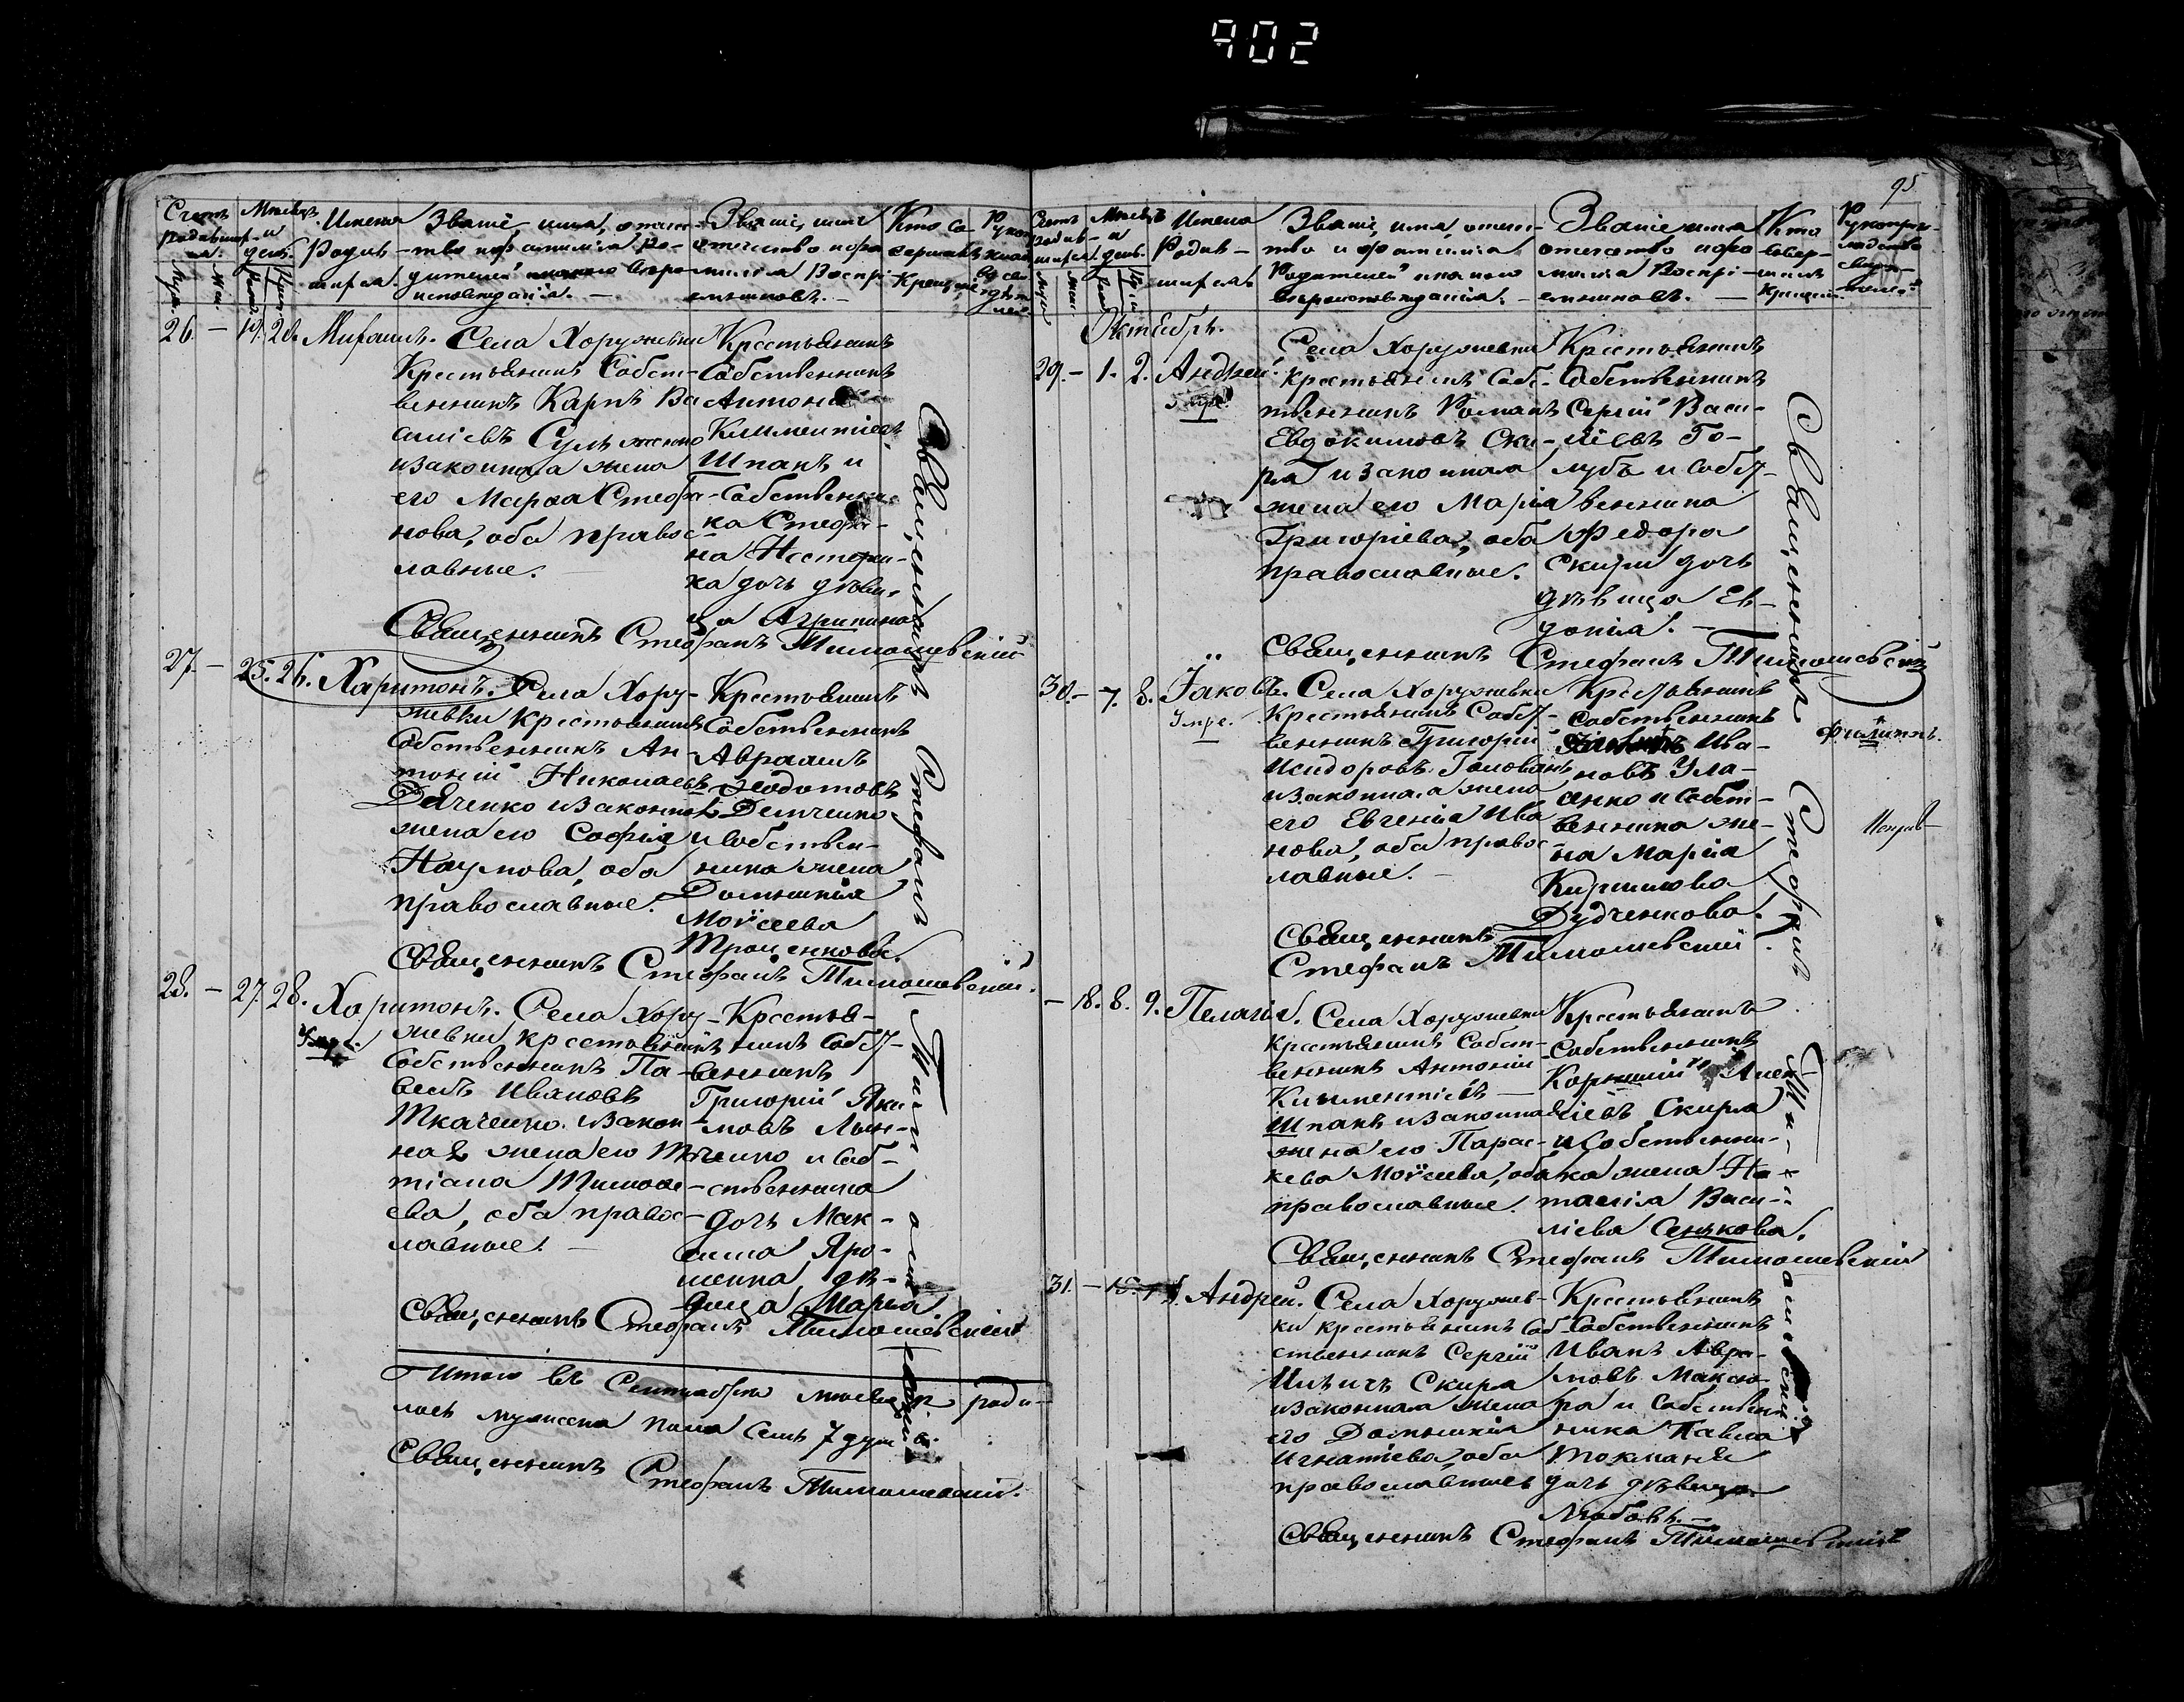 902
95
Счетъ
Мѣсяцъ
Имена
Званіе, имя, отче-
Званіе, имя
Кто со-
родивш-
и
день.
Родив-
тво и фамилія Ро-
отечество и фа-
вершалъ
шихся.
дителей и какого вѣро-
милія Воспрі-
Крещеніе
исповѣданія. —
емниковъ. —
26. — 19. 20. Михаилъ. Села Хоружевки
Крестьянинъ Собст-
венникъ Карпъ Ва
законная жена
его Марѳа Стефа-
нова, оба правос-
лавные.
Крестьянинъ
Собственникъ
Антоній
Климентіевъ
Шпакъ и
Собственни-
ка Стефа-
на Нестерен-
ка дочь дѣви-
ца Агрипина
Священникъ Стефанъ Тимошевскій
27. — 25. 26. Харитонъ. Села Хору-
жевки крестьянинъ
Собственникъ Ан-
тоній Николаевъ
Дяченко и законная
жена его Софія
Наумова, оба
православные.
Крестьянинъ
Собственникъ
Авраамъ
Ѳеодотовъ
Демченко
и Собствен-
ника жена
Домникія
Моѵсеева
Троценкова.
Священникъ Стефанъ Тимошевскій.
28. — 27. 28. Харитонъ. Села Хору-
Умре.
жевки, крестьянинъ
Собственникъ Па-
велъ Ивановъ
Ткаченко и закон-
ная жена его Та-
тіана Тимоѳе-
ева, оба правос-
лавные. —
Крестья-
нинъ Собст-
венникъ
Григорій Яки-
мовъ
и Соб-
ственника
дочь Мак-
сима Яро-
шенка дѣ-
вица Марія
Священникъ Стефанъ Тимошевскій
Итого въ Сентябрѣ мѣсяцѣ роди-
лось мужеска пола семь 7 душъ.
Священникъ Стефанъ Тимошевскій.
Священникъ Стефанъ Тимошевскій
Счетъ
Мѣсяцъ
Имена
Званіе, имя, отече-
Званіе имя
Кто
Рукопри-
родив-
и
Родив-
тво и фамилія
отечество и фа-
совер-
кладство
шихся.
день.
шихся
Родителей и какого
милія Воспрі-
шалъ
вѣроисповѣданія. —
емниковъ. —
крещеніе.
Октябрь.
29. — 1. 2. Андрей.
Умре
Села Хоружевки
крестьянинъ Собс-
твенникъ Романъ
Евдокимовъ Ски-
ра и законная
жена его Марія
Григоріева, оба
православные.
Крестьянинъ
Собственникъ
Сергій Васи-
ліевъ Го-
лубъ и собст-
венника
Ѳедора
Скиры дочь
дѣвица Ев-
докія. —
Священникъ Стефанъ Тимошевскій
30. — 7. 8. Іаковъ. Села Хоружевки
Умре.
Крестьянинъ Собст-
венникъ Григорій
Исидоровъ Голованъ
и законная жена
его Евгенія Ива
нова, оба правос-
лавные. —
Крестьянинъ
Собственникъ
Ива-
новъ Ула-
сенко и Собст-
венника же-
на Марія
Кириллова
Дудченкова.
Филиппъ.
Священникъ
Стефанъ Тимошевскій
— 18. 8. 9. Пелагія. Села Хоружевки
крестьянинъ Собст-
венникъ Антоній
Климентіевъ —
Шпакъ и законная
жена его Парас-
кева Моѵсеева, оба
православные.
Крестьянинъ
Собственникъ
Корнилій
Скира
и Собственни-
ка жена На-
талія Васи-
ліева Сенькова.
Священникъ Стефанъ Тимошевскій
31. — Андрей. Села Хоружев-
ки крестьянинъ Соб-
ственникъ Сергій
Ильичъ Скира
и законная жена
его Домникія
Игнатіева, оба
православные
Крестьянинъ
Собственникъ
Иванъ Авра-
мовъ
и Собствен-
ника Павла
Токманя
дочь дѣвица
Любовь. —
Священникъ Стефанъ Тимошевскій
Священникъ Стефанъ Тимошевскій